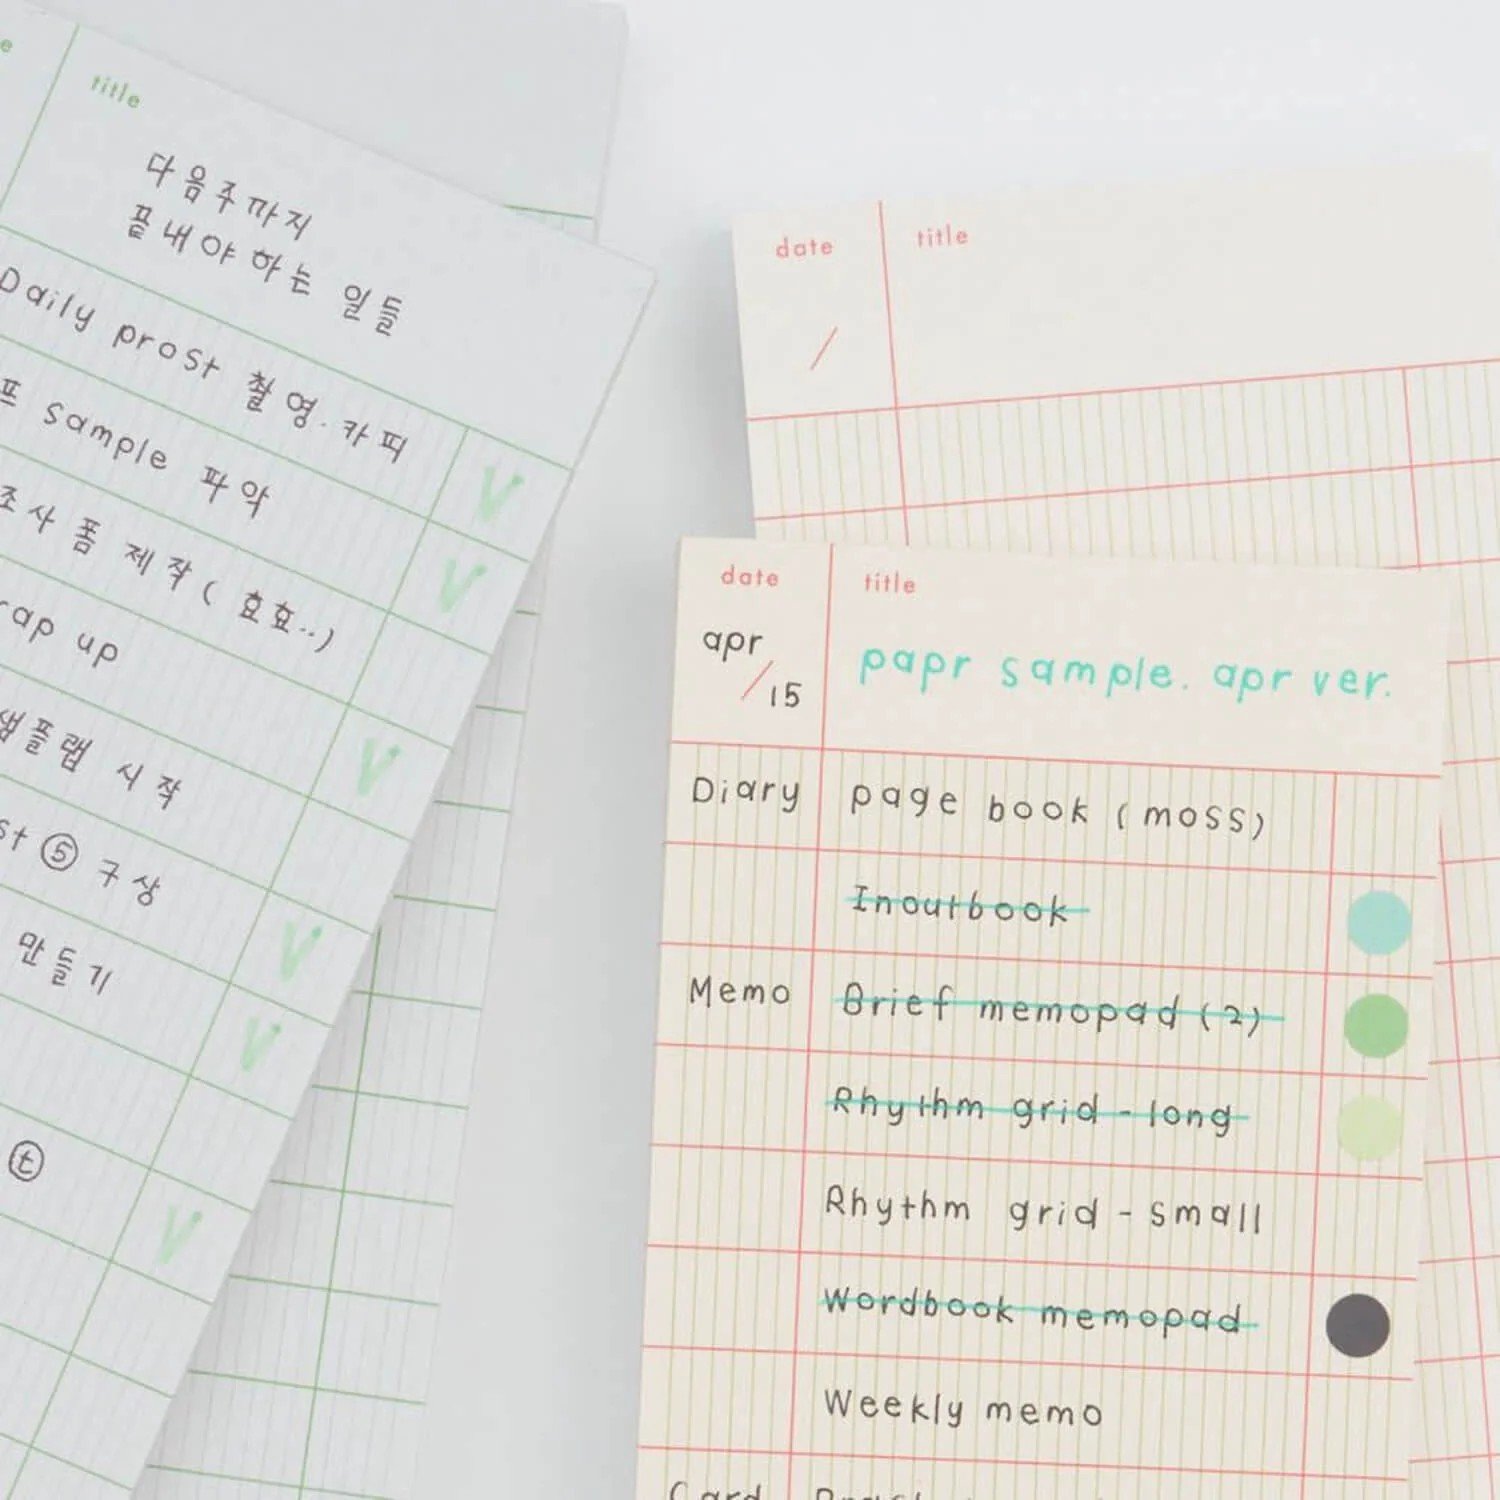 title
다음주까지
끝내야 하는 일들
Daily prost 촬영.카피
프 sample 파악
조사 폼 제작 ( 효효..)
rap up
샘플랩 시작
st ⑤ 구상
만들기
ⓣ
date title
/
date title
apr / 15 papr sample. apr ver.
Diary page book (moss)
Inoutbook
Memo Brief memopad (2)
Rhythm grid - long
Rhythm grid - small
Wordbook memopad
Weekly memo
Card